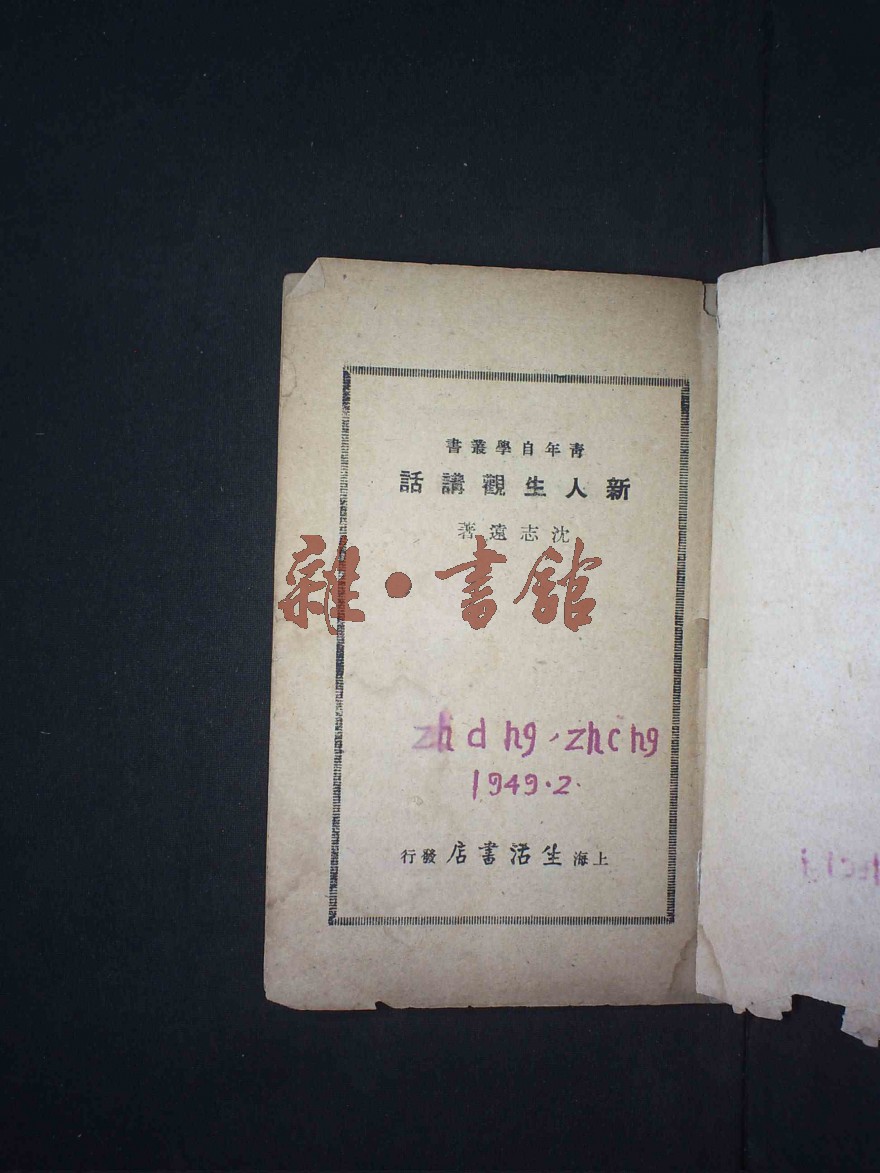 青年自學叢書
新人生觀講話
沈志遠著
雜·書舘
zhdng,zhcng
1949.2.
上海生活書店發行